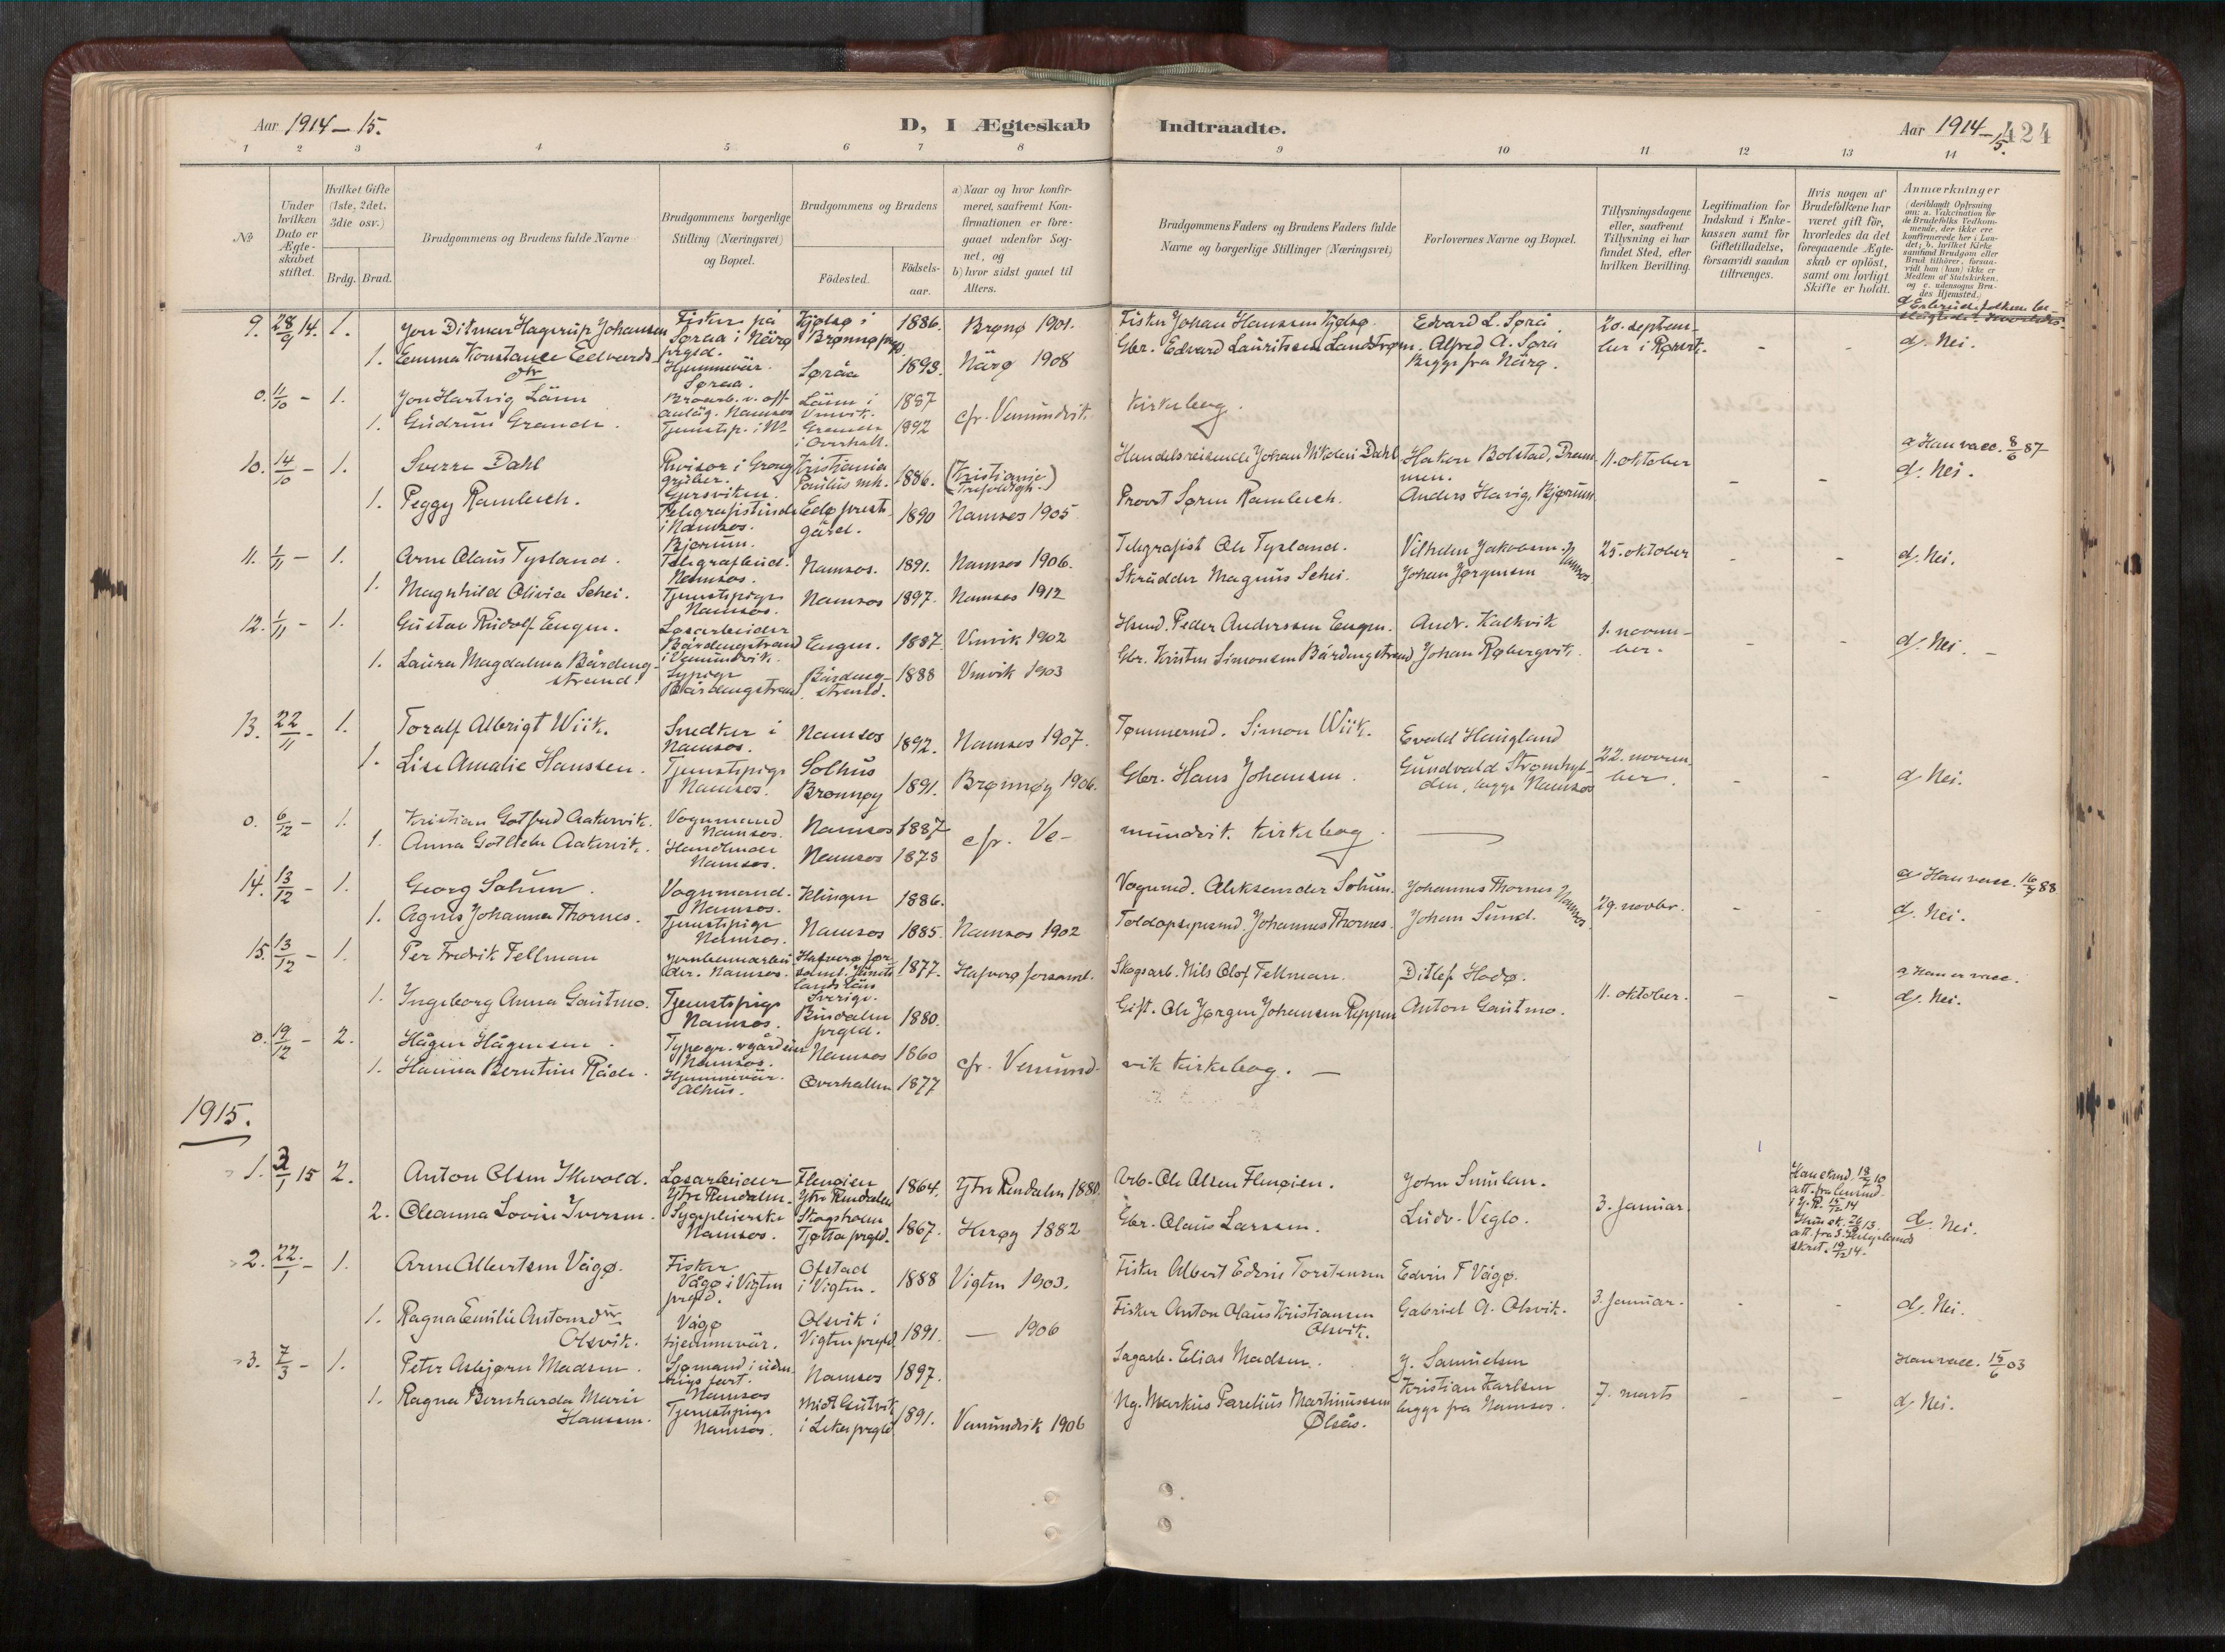 Aar 1914 – 15.
D, I Ægteskab
Indtraadte.
Aar 1914 – 15.
424
1 2 3 4 5 6 7 8 9 10 11 12 13 14
№
Under hvilken Dato er Ægteskabet stiftet.
Hvilket Gifte (1ste, 2det, 3die osv.)
Brdg. Brud.
Brudgommens og Brudens fulde Navne
Brudgommens borgerlige Stilling (Næringsvei) og Bopæl.
Brudgommens og Brudens
Födested.
Födsels-aar.
a) Naar og hvor konfirmeret, saafremt Konfirmationen er foregaaet udenfor Sognet, og
b) hvor sidst gaaet til Alters.
Brudgommens Faders og Brudens Faders fulde Navne og borgerlige Stillinger (Næringsvei)
Forlovernes Navne og Bopæl.
Tillysningsdagene eller, saafremt Tillysning ei har fundet Sted, efter hvilken Bevilling.
Legitimation for Indskud i Enkekassen samt for Giftetilladelse, forsaavidt saadan tiltrænges.
Hvis nogen af Brudefolkene har været gift för, hvorledes da det foregaaende Ægteskab er oplöst, samt om lovligt Skifte er holdt.
Anmærkninger
(deriblandt Oplysning om: a. Vakcination for de Brudefolks Vedkommende, der ikke ere konfirmerede her i Landet; b. hvilket Kirkesamfund Brudgom eller Brud tilhörer, forsaavidt han (hun) ikke er Medlem af Statskirken, og c. udensogns Brudes Hjemsted.)
9. 28/9 14. 1. Jon Ditmar Hagerup Johansen Fisker på Søraa i Närø prgld. Kjølsø i Brønnø prgl. 1886. Brønø 1901. Fisker Johan Hanssen Kjølsø. Edvard L. Søraa 20. septem-
1. Emma Konstance Edvards dtr Hjemmevär. Søraa. Søråa 1893. Närø 1908 Gbr. Edvard Lauritssen Landstrøm. Alfred A. Søraa Begge fra Närø. ber i Rørvik. - - d. Nei.
0. 11/10 - 1. Jon Hartvig Lämn Namsos Vmvik. 1887 cfr. Vemundvik Kirkebog.
1. Gudrun Grande. Tjenestep. i Ns Grande i Overhall. 1892
10. 14/10 - 1. Sverre Dahl Revisor i Grong gruber. Gjersviken. Kristiania Paulus mh. 1886. (Kristiania Trefoldigh.) Handelsreisende Johan Nikolai Dahl Haken Bolstad, Drammen. 11. oktober - - a Han vacc. 8/6 87
1. Peggy Rambech. Telegrafistinde i Namsos. Bjørum. Edø prestgård. 1890 Namsos 1905. Provst Søren Rambech. Anders Havig, Bjørum d. Nei.
11. 1/11 - 1. Arne Olaus Tysland. Telegrafbud. Namsos. Namsos. 1891. Namsos 1906. Telegrafist Ole Tysland. Vilhelm Jakobsen. Namsos 25. oktober - - d. Nei.
1. Magnhild Olivia Schei. Tjenestepige Namsos. Namsos 1897. Namsos 1912 Skrädder Magnus Schei. Johan Jørgensen
12. 1/11 - 1. Gustav Rudolf Engen. Løsarbeider Bårdengstrand i Vemundvik. Engen. 1887. Vmvik 1902 Hsmd. Peder Anderssen Engen. Andr. Kalkvik 1. novem-ber. - - d. Nei. -
1. Laura Magdalena Bårdeng-strand. Sypige Bårdengstrand Bårdeng-strand. 1888 Vmvik 1903 Gbr. Kristen Simonsen Bårdengstrand Johan Røbergvik.
13. 22/11 - 1. Toralf Albrigt Wiik. Snedker i Namsos. Namsos 1892. Namsos 1907. Tømmermd. Simon Wiik. Evald Haugland 22. novem-ber. - - d. Nei.
1. Lise Amalie Hanssen. Tjenestepige Namsos. Solhus Brønnøy 1891. Brønnøy 1906. Gbr. Hans Johansen. Gundvald Strømhyl-den, begge Namsos
0. 6/12 - 1. Kristian Gotfred Aakervik. Vognmand Namsos. Namsos 1887 cfr. Ve-mundvik. Kirkebog.
1. Anna Aakervik. Handlende Namsos. Namsos 1878
14. 13/12 - 1. Georg Solum. Vognmand. Namsos. Klingen 1886. Vognmd. Aleksander Solum. Johannes Thornes Namsos 29. novbr. - - a Han vacc. 16/7 88
1. Agnes Johanna Thornes. Tjenestepige Namsos. Namsos 1885. Namsos 1902 Toldopsynsmd. Johannes Thornes. Johan Sund. d. Nei.
15. 13/12 - 1. Per Fredrik Fellman Jernbanearbei-der. Namsos. Hafverø for-saml. Jämt-lands Län Sverige. 1877. Hafverø forsaml. Skogsarb. Nils Olof Fellman. Ditlef Hodø. 11. oktober. - - a Han er vacc.
1. Ingeborg Anna Gautmo. Tjenestepige Namsos. Bindalen prgld. 1880. Gift. Ole Jørgen Johansen Reppen Anton Gautmo. d. Nei.
0. 19/12 - 2. Hågen Hågensen. Typogr. Namsos. Namsos 1860 cfr. Vemund-vik Kirkebog. -
1. Hanna Berntine Råde. Hjemmevär. Alhus. Overhallen 1877
1915.
1. 3/1 15 2. Anton Olsen Løsarbeider Ytre Rendalen. Flengien Ytre Rendalen 1864. Ytre Rendalen 1880. Arb. Ole Olsen Flengien. John Sunlan. 3. Januar
2. Oleanna Lovise Iversen. Sygepleierske Namsos. Skogsholm Tjøtta prgld. 1867. Herøy 1882 Gbr. Olaus Larssen. Ludv. Veglo. d. Nei.
2. 22/1 - 1. Arne Albertsen Vågø. Fisker Vågø i Vigten prgld. Ofstad i Vigten. 1888 Vigten 1903. Fisker Albert Edvin Torstensen Edvin T Vågø. 3. Januar. - - d. Nei.
1. Ragna Emilie Antonsdtr Olsvik. Vågø hjemmevär. Olsvik i Vigten prgld. 1891. — 1906 Fisker Anton Olaus Kristiansen Olsvik. Gabriel A. Olsvik.
3. 7/3 - 1. Peter Asbjørn Madsen. Sjømand i uden-rigs fart. Namsos Namsos 1897. Sagarb. Elias Madsen. J. Samuelsen 7. marts - - Han vacc. 15/6 03
1. Ragna Bernharda Marie Hanssen. Tjenestepige Namsos. Midt Gutvik i Leka prgld. 1891. Vemundvik 1906 Ng. Markus Parelius Martinussen Ølsås. Kristian Karlsen begge fra Namsos. d. Nei.